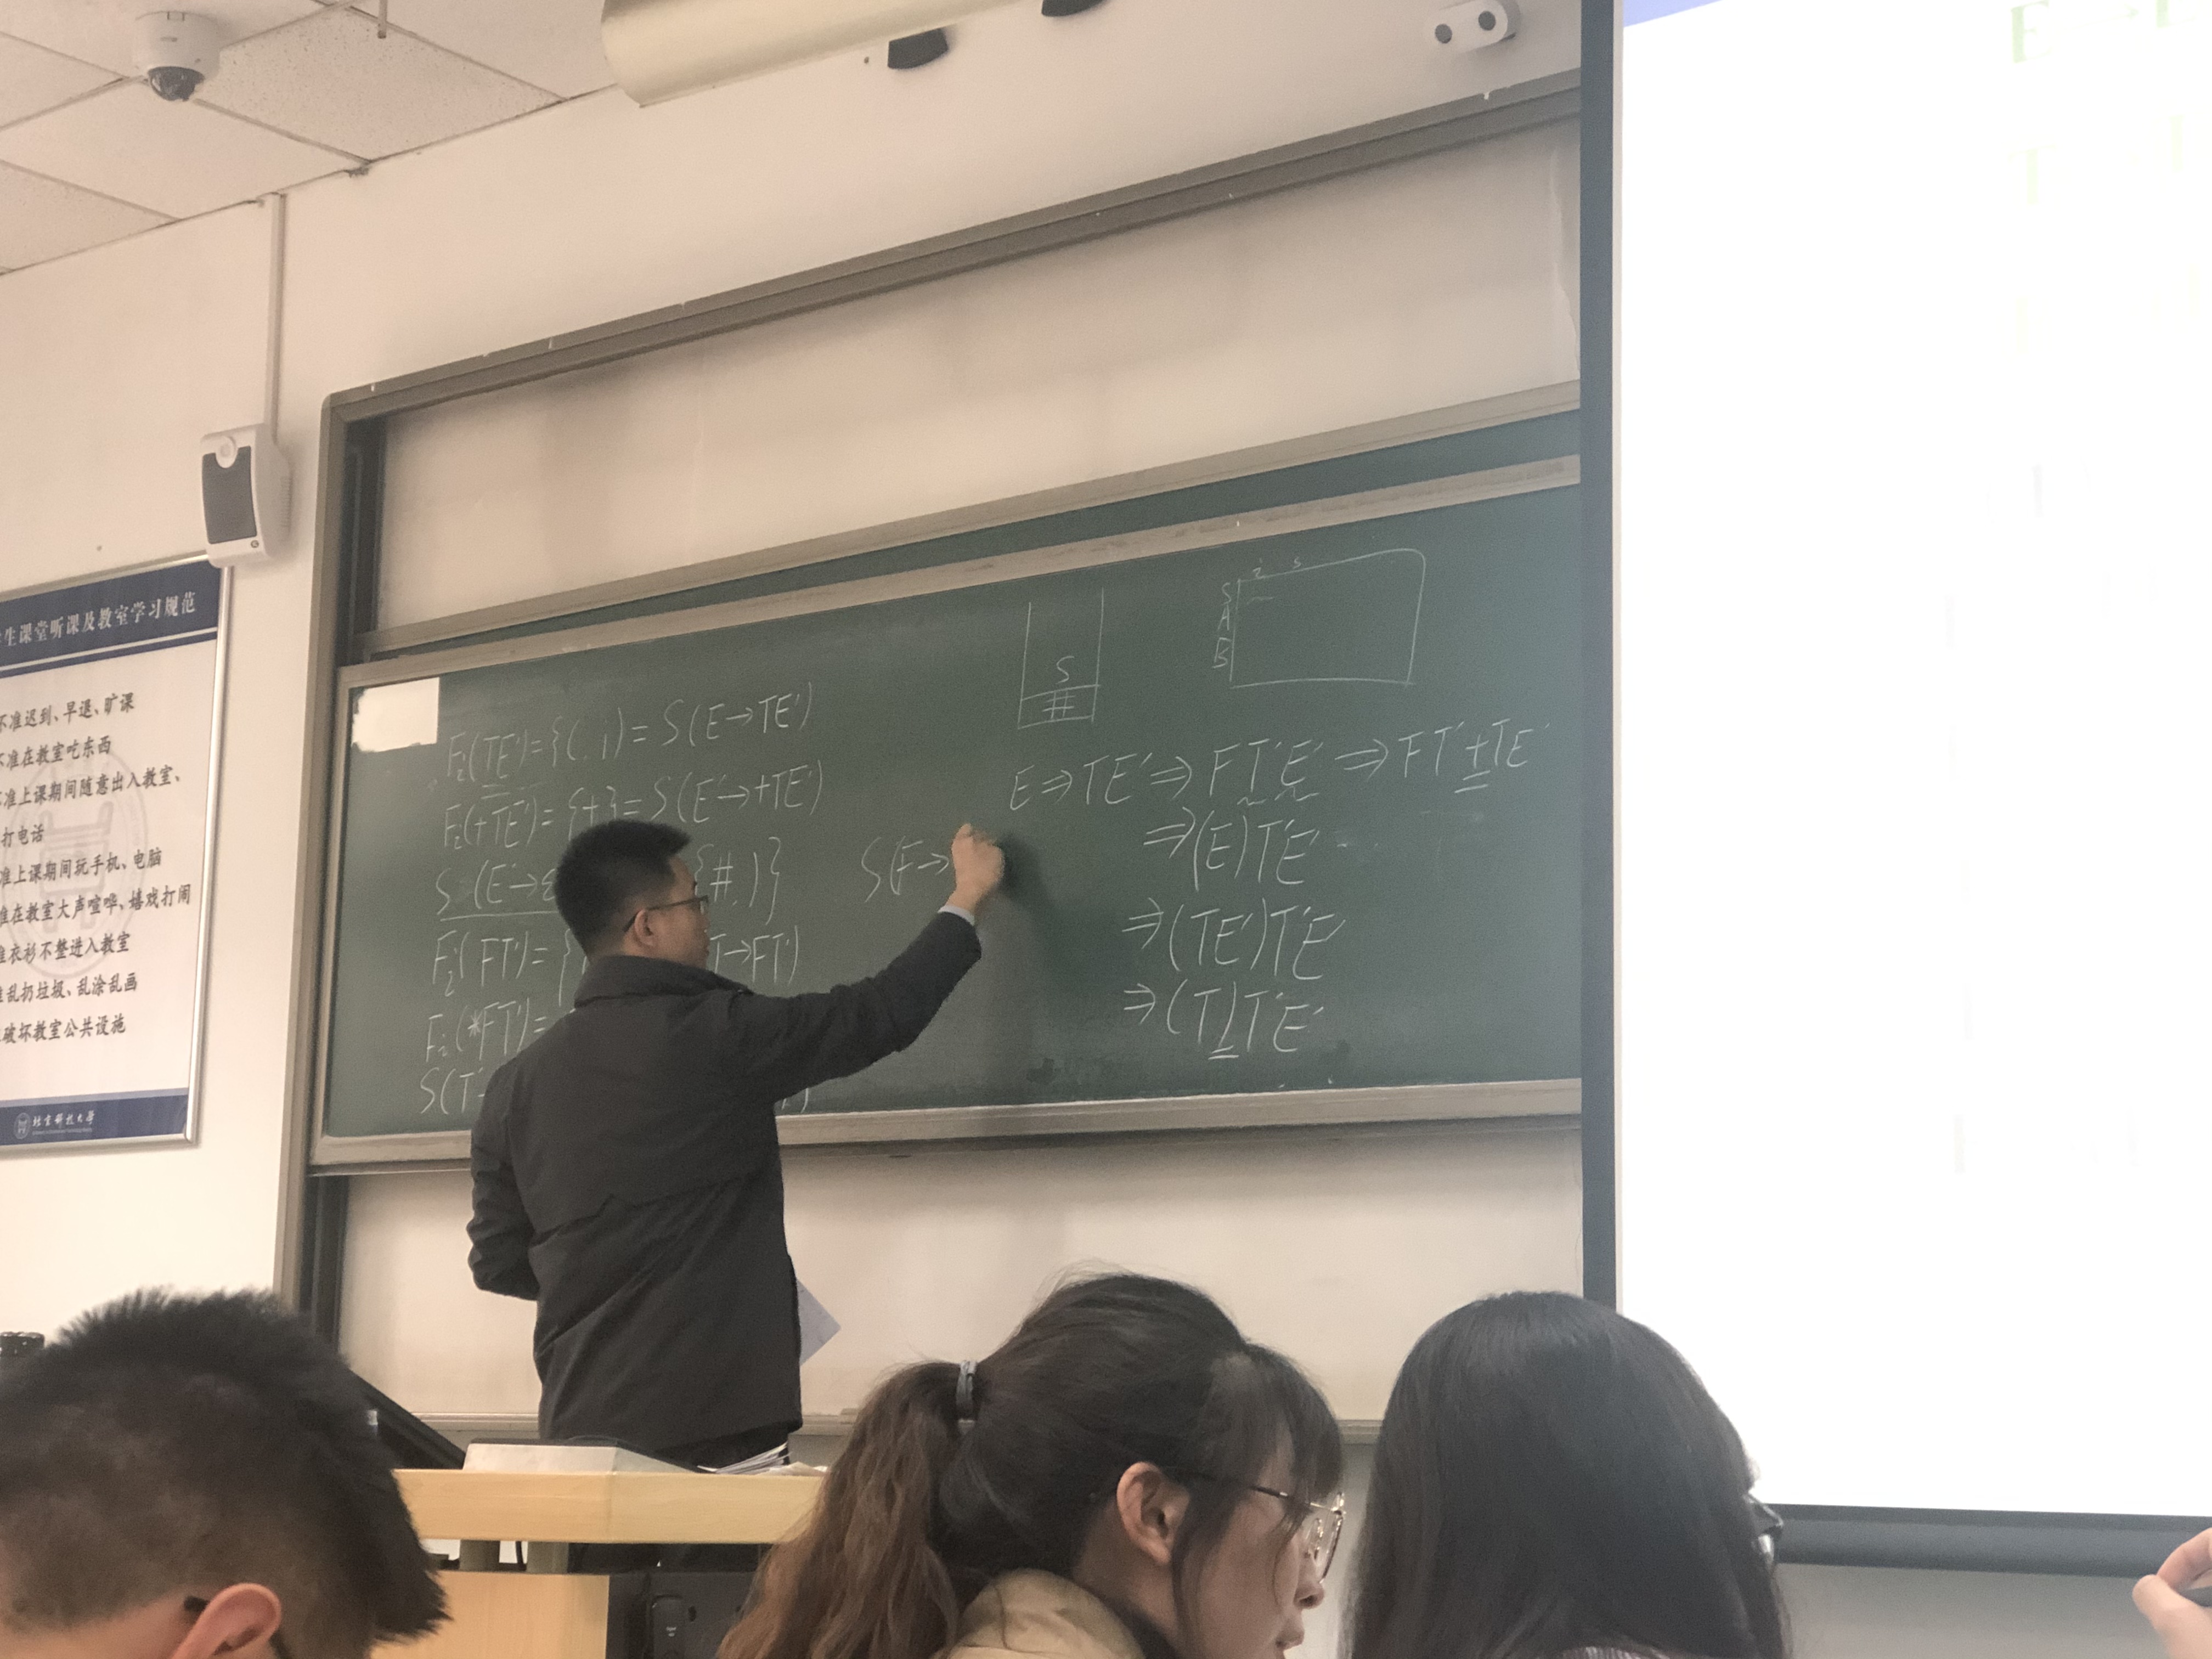 生课堂听课及教室学习规范
不准迟到、早退、旷课
不准在教室吃东西
准上课期间随意出入教室、
打电话
准上课期间玩手机、电脑
准在教室大声喧哗、嬉戏打闹
准衣衫不整进入教室
乱扔垃圾、乱涂乱画
破坏教室公共设施
北京科技大学
(TE')={(, i) = S(E→TE')
(+TE')= {+}= S(E'→+TE')
S (E→ε {#,)}
(FT')= { T→FT')
(*FT')=
S(T'
S(F→
S
#
i s
S
A
B
E⇒TE'⇒FT'E'⇒FT'+TE'
⇒(E)T'E'
⇒(TE')T'E'
⇒(T)T'E'
E